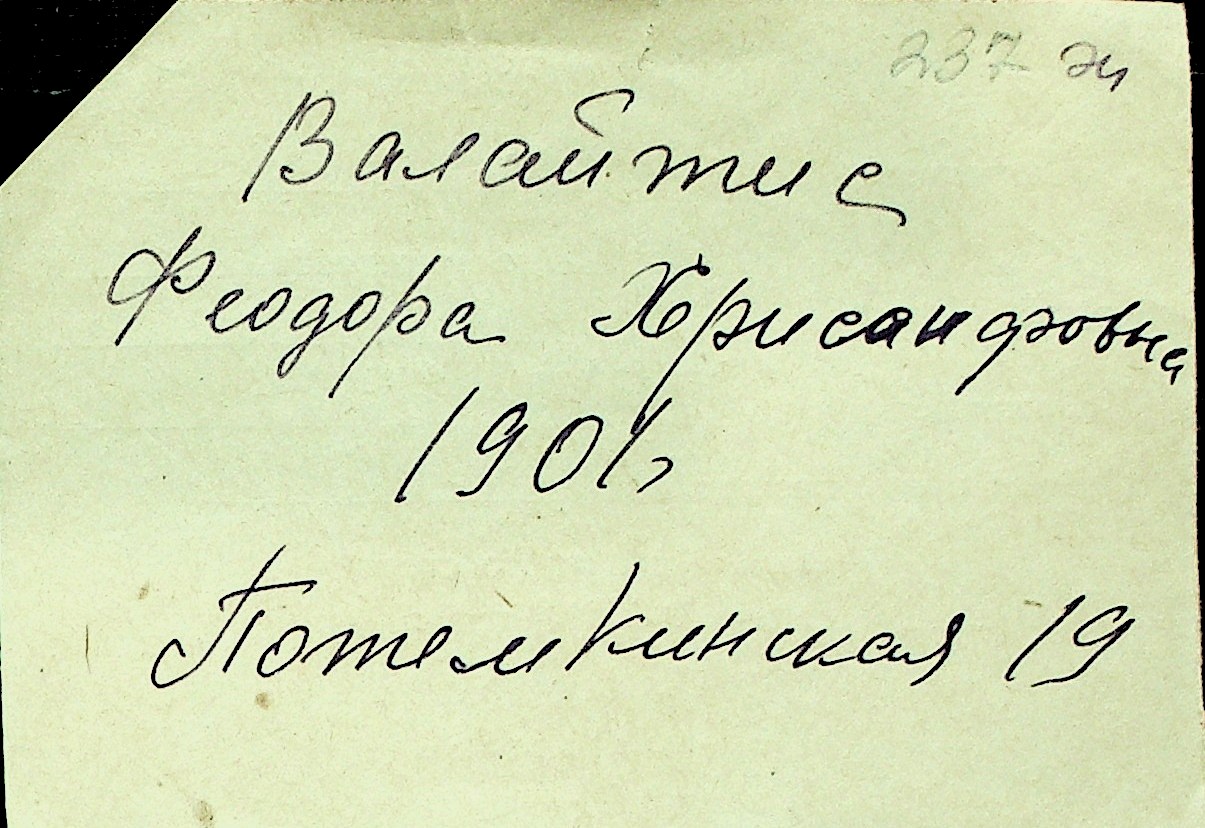 237
Валайтис
Феодора Хрисанфовна
1901
Потемкинская 19